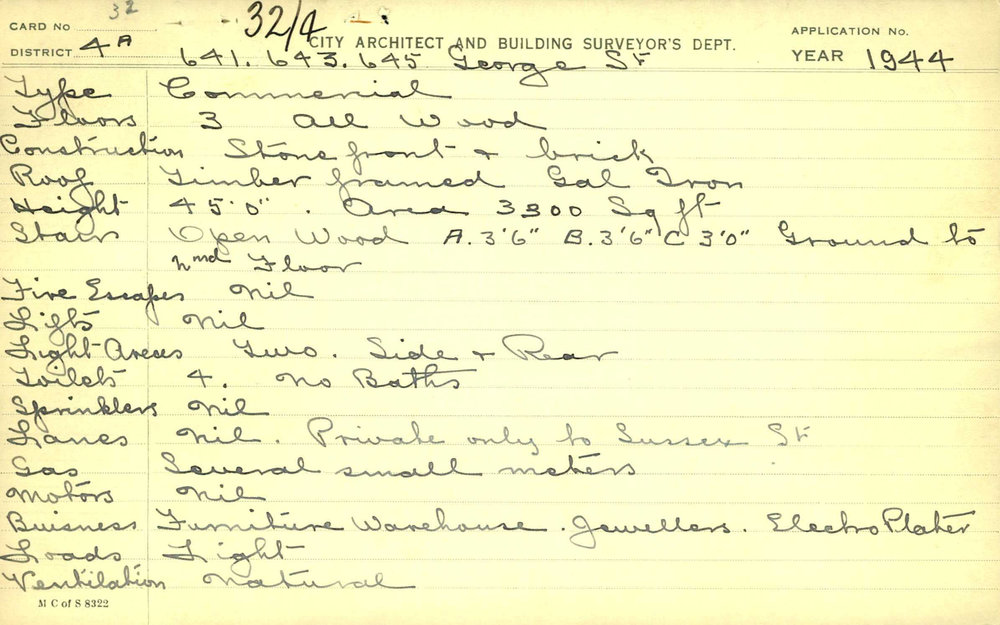 32
32/4
CARD No
CITY ARCHITECT AND BUILDING SURVEYOR'S DEPT.
APPLICATION No.
DISTRICT 4A
641. 643. 645 George St
YEAR 1944
Type Commercial
Floors 3 All Wood
Construction Stone front + brick
Roof Timber framed Gal Iron
Height 45'0" . Area 3300 Sq ft
Stairs Open Wood A. 3'6" B. 3'6" C 3'0" Ground to
2nd Floor
Fire Escapes Nil
Lifts Nil
Light Areas Two. Side + Rear
Toilets 4. No Baths
Sprinklers Nil
Lanes Nil. Private only to Sussex St
Gas Several small meters
Motors Nil
Buisness Furniture Warehouse. Jewellers. Electro Plater
Loads Light
Ventilation Natural
M C of S 8322